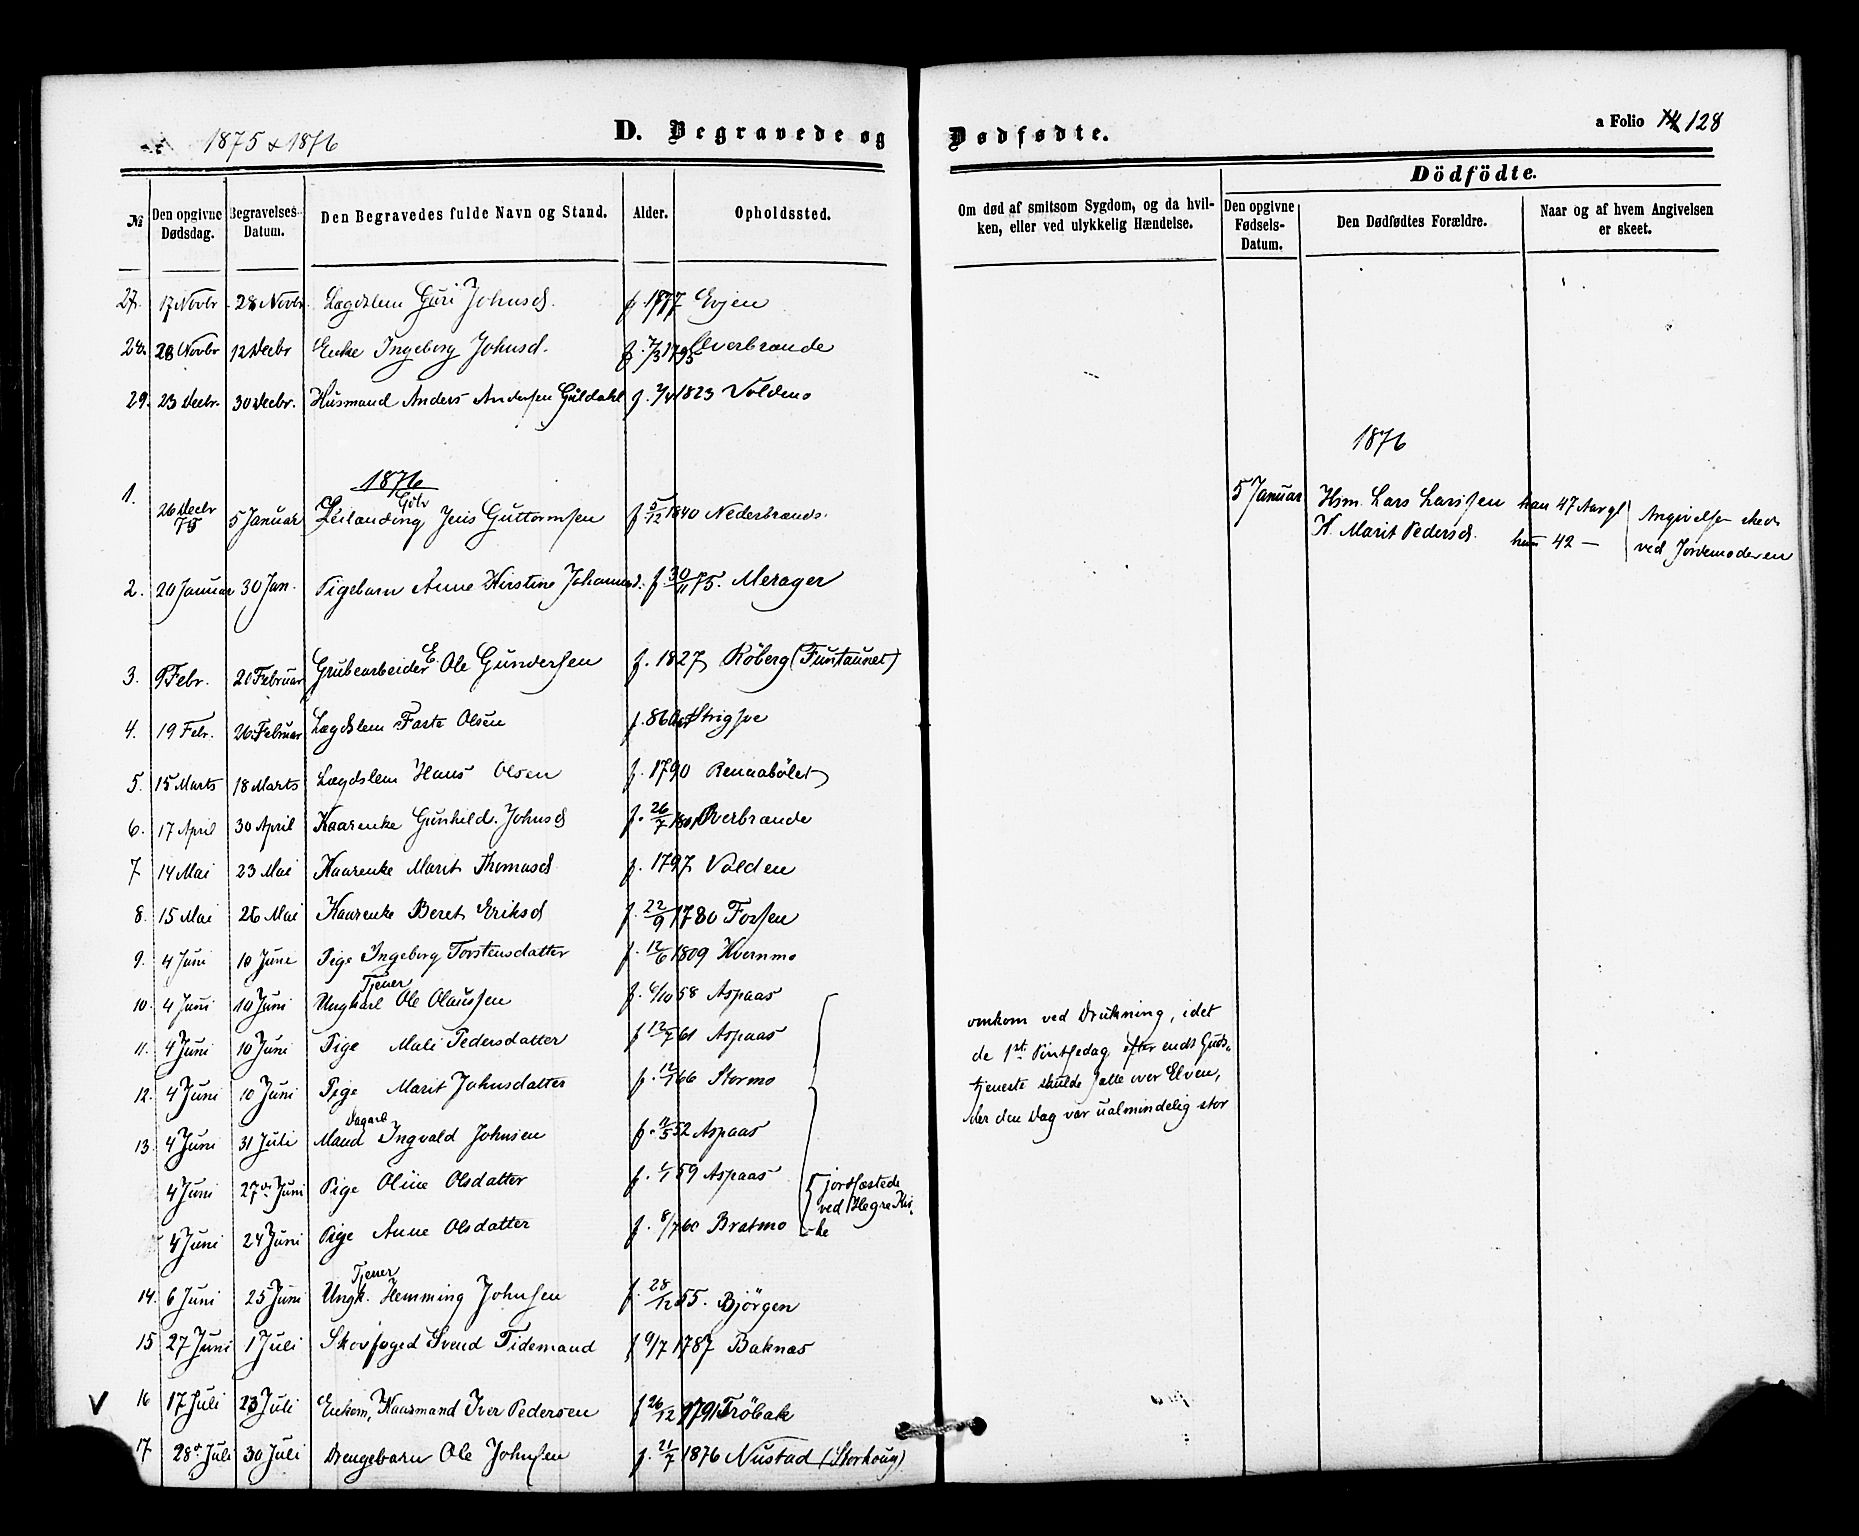 1875 & 1876
D. Begravede og Dødfødte.
a Folio 128
№
Den opgivne Dødsdag.
Begravelses-Datum.
Den Begravedes fulde Navn og Stand.
Alder.
Opholdssted.
Om død af smitsom Sygdom, og da hvil-
ken, eller ved ulykkelig Hændelse.
Dödfödte.
Den opgivne Fødsels-Datum.
Den Dødfødtes Forældre.
Naar og af hvem Angivelsen
er skeet.
27. 17 Novbr 28 Novbr. Lægdslem Guri Johnsd. f. 1777 Evjen
28. 28 Novbr 12 Decbr Enke Ingeborg Johnsd. f. 1795 Overbrande
29. 23 Decbr. 30 Decbr. Husmand Anders Andersen Guldahl f. 1823 Voldmo
1876
1. 26 Decbr 75 5 Januar Leilænding Jens Guttormsen f 5/12 1840 Nederbrands.
2. 20 Januar 30 Jan. Pigebarn Anne Kirstine Johannesd. f 30/11 75. Merager
3. 9 Febr. 20 Februar Grubearbeider E. Ole Gundersen f. 1827 Röberg (Funtaunet)
4. 19 Febr. 26. Februar Lægdslem Faste Olsen f. 86 Strigsve
5. 15 Marts 18 Marts Lægdslem Hans Olsen f. 1790 Rennabölet
6. 17 April 30 April Kaarenke Gunhild Johnsd f. 26/7 1801 Overbrande
7 14 Mai 23 Mai Kaarenke Marit Thomasd f. 1797 Volden
8. 15 Mai 26 Mai Kaarenke Beret Eriksd f. 22/9 1780 Forsen
9. 4 Juni 10 June Pige Ingeborg Torstensdatter f. 12/6 1809 Kvernmo
10. 4 Juni 10 Juni Ungkarl Tjener Ole Olaussen f. 6/10 58 Aspaas
11. 4 Juni 10 Juni Pige Mali Pedersdatter f 12/7 61 Aspaas
12. 4 Juni 10 Juni Pige Marit Johnsdatter f. 12/1 66 Stormo
13. 4 Juni 31 Juli Dagarb Mand Ingvald Johnsen f. 52 Aspaas
4 Juni 27de Juni Pige Oline Olsdatter f. 1/1 59 Aspaas
4 Juni 24 Juni Pige Anne Olsdatter f. 8/7 60 Bratmo
jordfæstede
ved Hegre Kir-
ke
14. 6 Juni 25 Juni Ungk. Tjener Hemming Johnsen f. 28/12 55. Bjørgen
15 27 Juni 1 Juli Skovfoged Svend Tidemand f 6/7 1787 Baknas
V 16 17 Juli 23 Juli Enkem, Kaarmand Iver Pedersen f 26/12 1791 Tröbak
17. 28de Juli 30 Juli Drengebarn Ole Johnsen f. 21/7 1876 Nustad (Storhoug)
omkom ved Drukning, idet
de 1ste Pintsedag efter endt Guds-
tjeneste skulde sætte over Elven,
der den Dag var ualmindelig stor
1876
5 Januar Hsm. Lars Larssen han 47 Aar gl
K. Marit Pedersd. hun 42 —
Angivelse skede
ved Jordemoderen